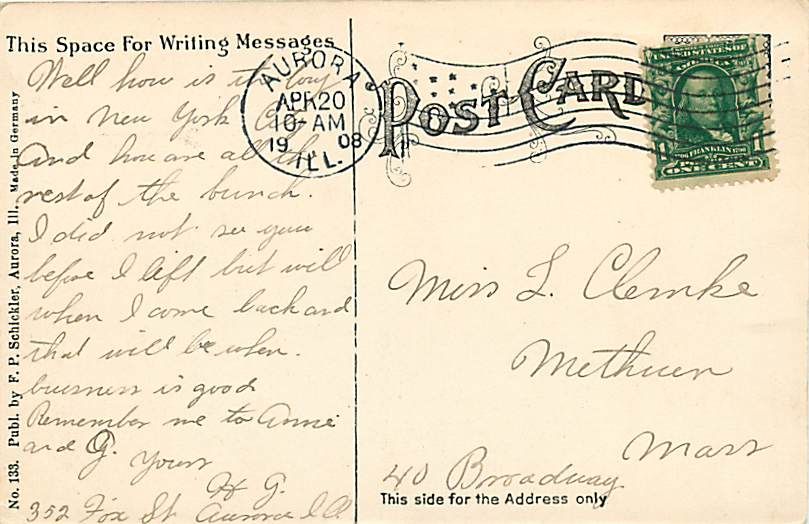 This Space For Writing Messages
Well how is the boy
in New York
And how are all the
rest of the bunch.
I did not see you
before I left but will
when I come back and
that will be when
business is good
Remember me to Annie
and G.
Yours
H G.
352 Fox St Aurora Ill
No. 133. Publ. by F. P. Schickler, Aurora, Ill. Made in Germany
AURORA
APR 20
10-AM
1908
ILL.
POST CARD
FRANKLIN
1 ONE CENT 1
Miss L. Clemke
Methuen
Mass
40 Broadway
This side for the Address only